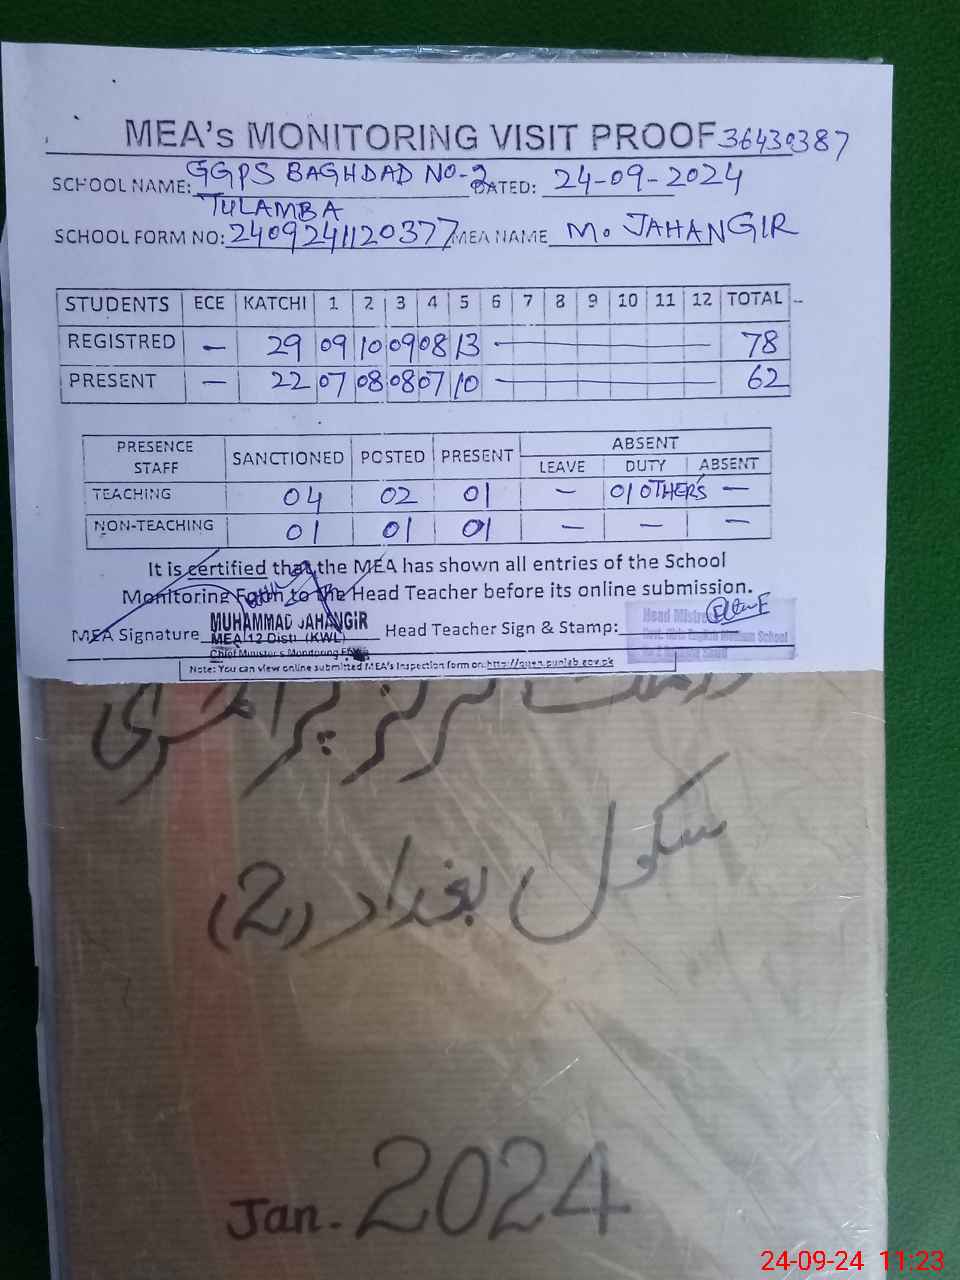 MEA's MONITORING VISIT PROOF 36430387
SCHOOL NAME: GGPS BAGHDAD NO-2 DATED: 24-09-2024
TULAMBA
SCHOOL FORM NO: 2409241120377 MEA NAME M. JAHANGIR
STUDENTS ECE KATCHI 1 2 3 4 5 6 7 8 9 10 11 12 TOTAL
REGISTRED — 29 09 10 09 08 13 — 78
PRESENT — 22 07 08 08 07 10 — 62
PRESENCE STAFF SANCTIONED POSTED PRESENT ABSENT
LEAVE DUTY ABSENT
TEACHING 04 02 01 — 01 OTHERS —
NON-TEACHING 01 01 01 — — —
It is certified that the MEA has shown all entries of the School
Monitoring Form to the Head Teacher before its online submission.
MUHAMMAD JAHANGIR
MEA Signature MEA 12 Distt (KWL) Head Teacher Sign & Stamp:
Chief Minister's Monitoring
Head Mistress
Govt. Girls English Medium School
Note: You can view online submitted MEA's inspection form on: http://open.punjab.gov.pk
گرلز پرائمری
سکول بغداد (2)
Jan. 2024
24-09-24 11:23